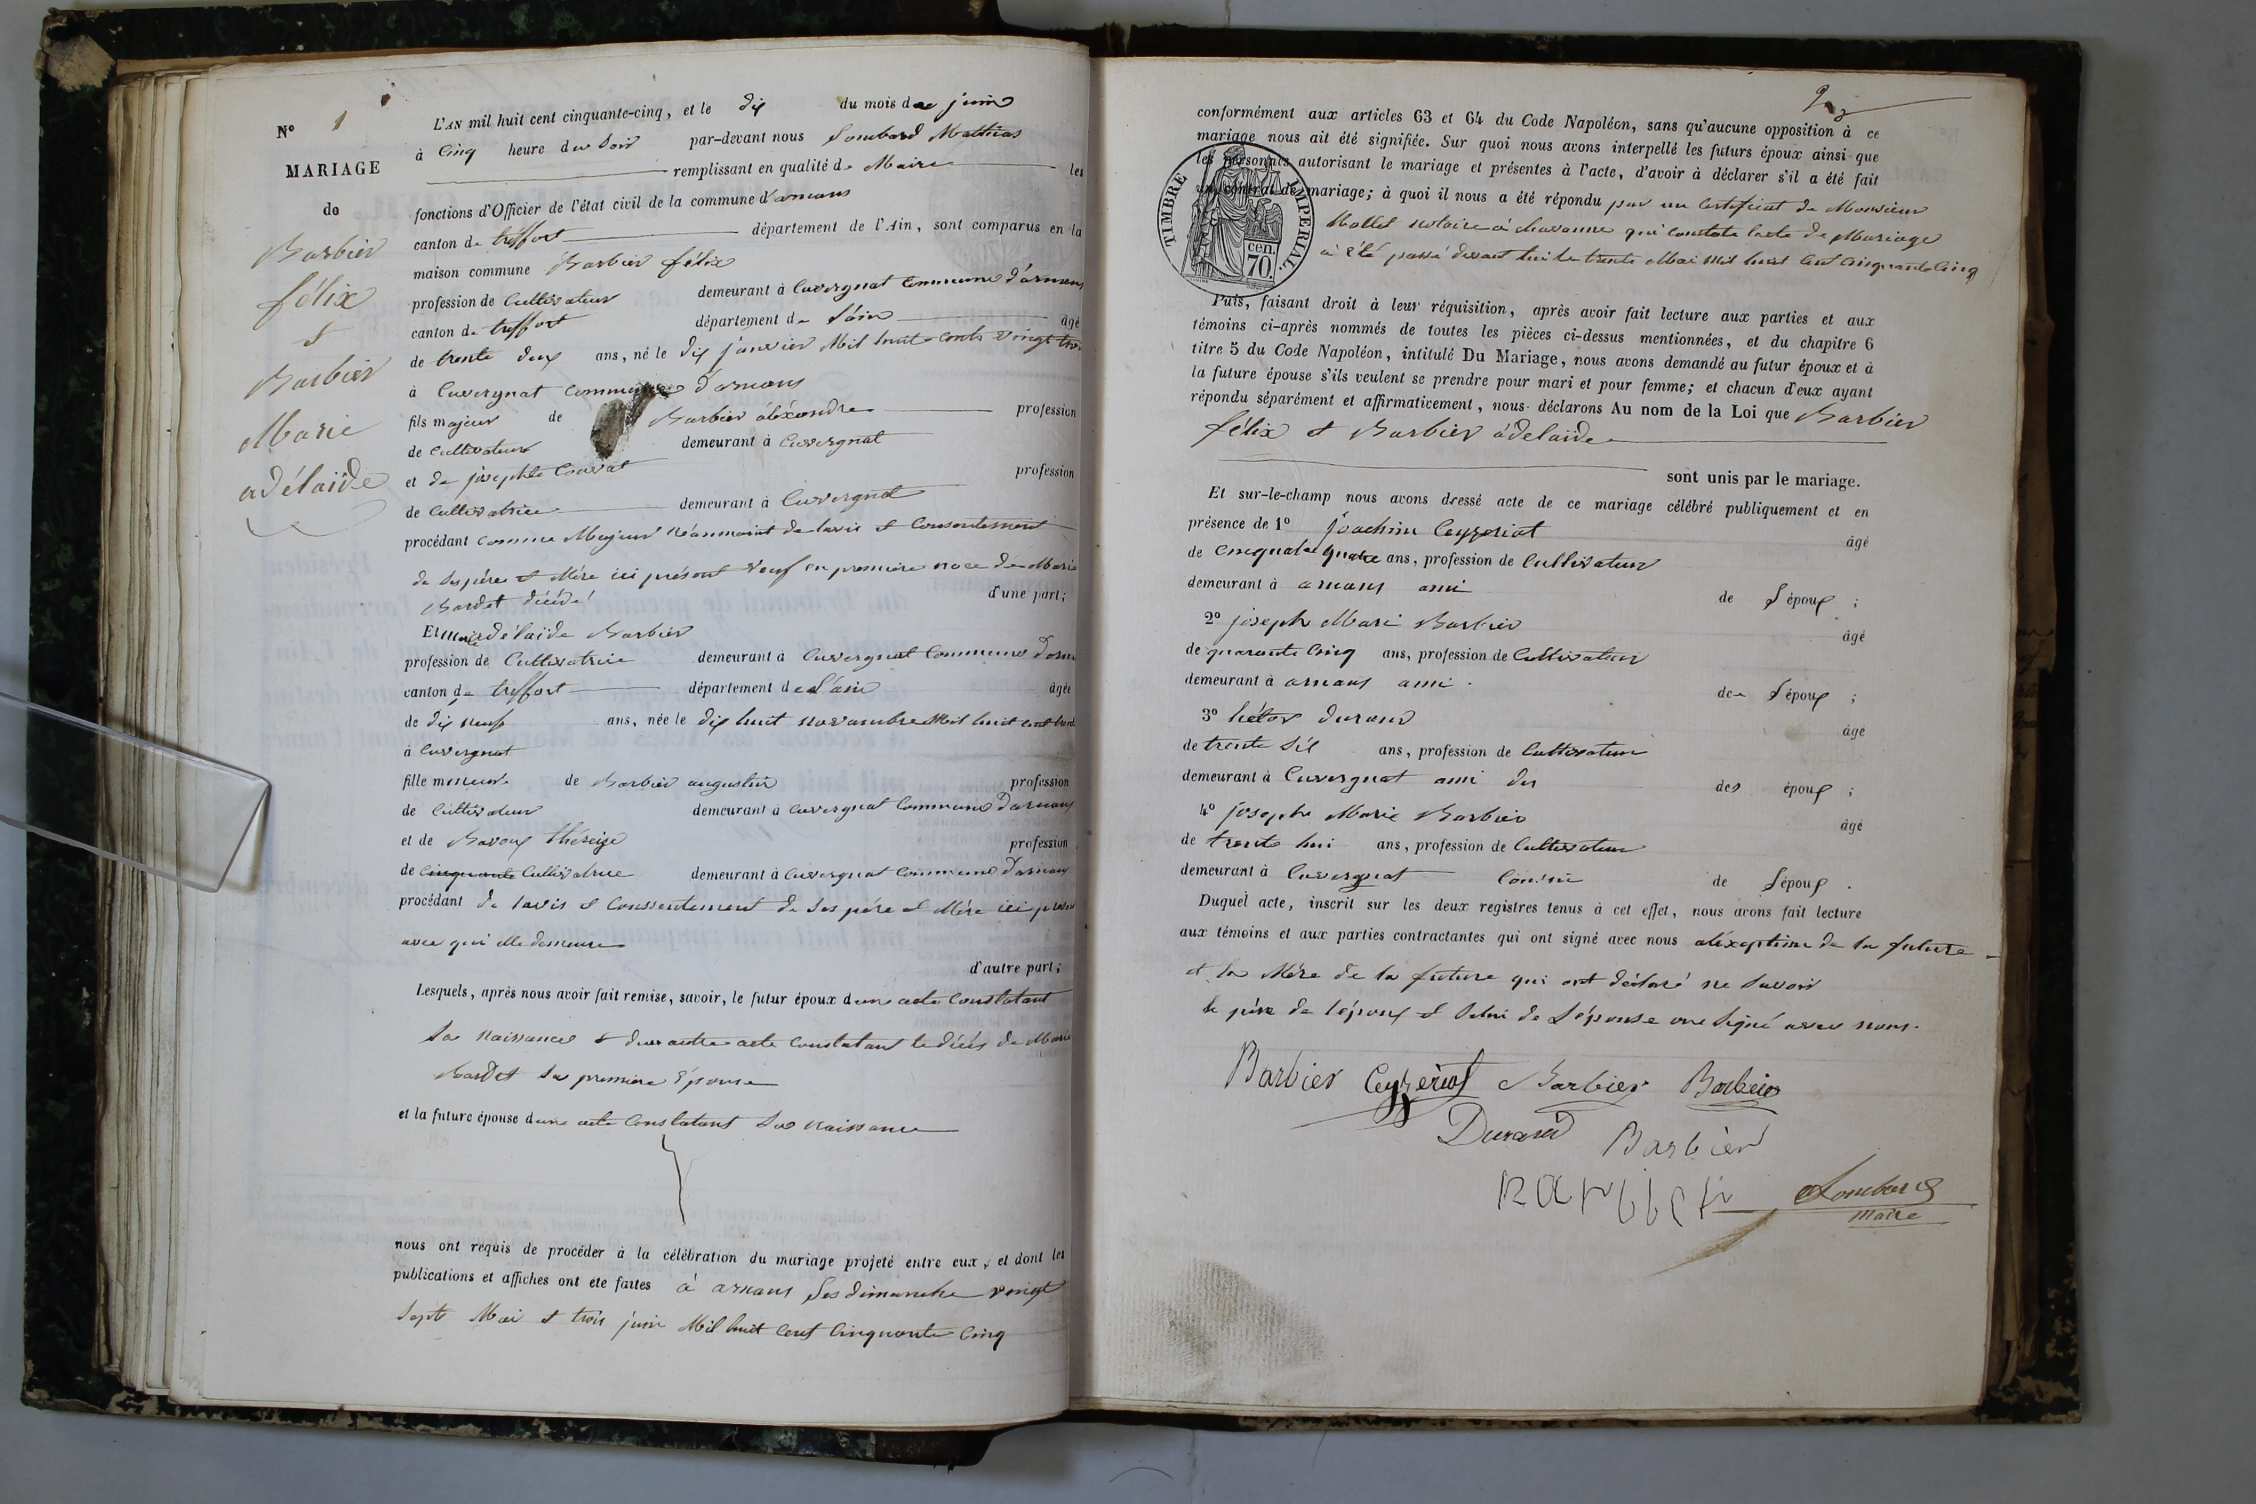 N° 1
MARIAGE
de
Barbier
félix
&
Barbier
Marie
adélaïde
L'AN mil huit cent cinquante-cinq, et le dix du mois de juin
à Cinq heure du Soir par-devant nous Lombard Mathias
remplissant en qualité de Maire les
fonctions d'Officier de l'état civil de la commune d'arnans
canton de treffort département de l'Ain, sont comparus en la
maison commune Barbier félix
profession de Cultivateur demeurant à Cuvergnat Commune d'arnans
canton de treffort département de l'ain âgé
de trente deux ans, né le dix janvier Mil huit cents vingt trois
à Cuvergnat Commune d'arnans
fils majeur de Barbier aléxandre profession
de Cultivateur demeurant à Cuvergnat
et de josephte Convat profession
de Cultivatrice demeurant à Cuvergnat
procédant comme Majeur néanmoint de lavis et Consentement
de Ses père et Mère ici présent Veuf en première noce de Marie
Bardet décédé d'une part;
Et Marie adélaïde Barbier
profession de Cultivatrice demeurant à Cuvergnat Commune d'arn
canton de treffort département de l'ain âgée
de dix neuf ans, née le dix huit novembre Mil huit cent trente
à Cuvergnat
fille mineure de Barbier augustin profession
de Cultivateur demeurant à Cuvergnat Commune d'arnans
et de Bavoux théreize profession
de cinquante Cultivatrice demeurant à Cuvergnat Commune d'arnans
procédant de lavis et Conssentement de Ses père et Mère ici présent
avec qui elle demeure
d'autre part;
Lesquels, après nous avoir fait remise, savoir, le futur époux d'un acte Constatant
Sa naissance & d'un autre acte Constatant le décès de Marie
Bardet Sa première Épouse
et la future épouse d'un acte Constatant Sa naissance
nous ont requis de procéder à la célébration du mariage projeté entre eux, et dont les
publications et affiches ont été faites à arnans Les dimanche vingt
Sept Mai & trois juin Mil huit cent Cinquante Cinq
2
conformément aux articles 63 et 64 du Code Napoléon, sans qu'aucune opposition à ce
mariage nous ait été signifiée. Sur quoi nous avons interpellé les futurs époux ainsi que
les personnes autorisant le mariage et présentes à l'acte, d'avoir à déclarer s'il a été fait
un contrat de mariage; à quoi il nous a été répondu par un Certificat de Monsieur
Mollet notaire à chavanne qui constate lacte de Mariage
a été passé devant lui le trente Mai Mil huit Cent Cinquante Cinq
TIMBRE IMPÉRIAL.
cen.
70.
Puis, faisant droit à leur réquisition, après avoir fait lecture aux parties et aux
témoins ci-après nommés de toutes les pièces ci-dessus mentionnées, et du chapitre 6
titre 5 du Code Napoléon, intitulé Du Mariage, nous avons demandé au futur époux et à
la future épouse s'ils veulent se prendre pour mari et pour femme; et chacun d'eux ayant
répondu séparément et affirmativement, nous déclarons Au nom de la Loi que Barbier
félix & Barbier adelaïde
sont unis par le mariage.
Et sur-le-champ nous avons dressé acte de ce mariage célébré publiquement et en
présence de 1° joachim Ceyzeriat âgé
de cinquate quatre ans, profession de Cultivateur
demeurant à arnans ami de L'époux ;
2° joseph Marie Barbier âgé
de quarante Cinq ans, profession de Cultivateur
demeurant à arnans ami de L'époux ;
3° hélor durand âgé
de trente Sis ans, profession de Cultivateur
demeurant à Cuvergnat ami des des époux ;
4° joseph Marie Barbier âgé
de trente hui ans, profession de Cultivateur
demeurant à Cuvergnat Cousin de L'époux .
Duquel acte, inscrit sur les deux registres tenus à cet effet, nous avons fait lecture
aux témoins et aux parties contractantes qui ont signé avec nous aléxeption de la future
et la Mère de la future qui ont déclaré ne Savoir
le père de l'époux & Celui de L'épouse one Signé avec nous.
Barbier Ceyzeriat Barbier Barbier
Durand Barbier
Barbier Lombard
Maire